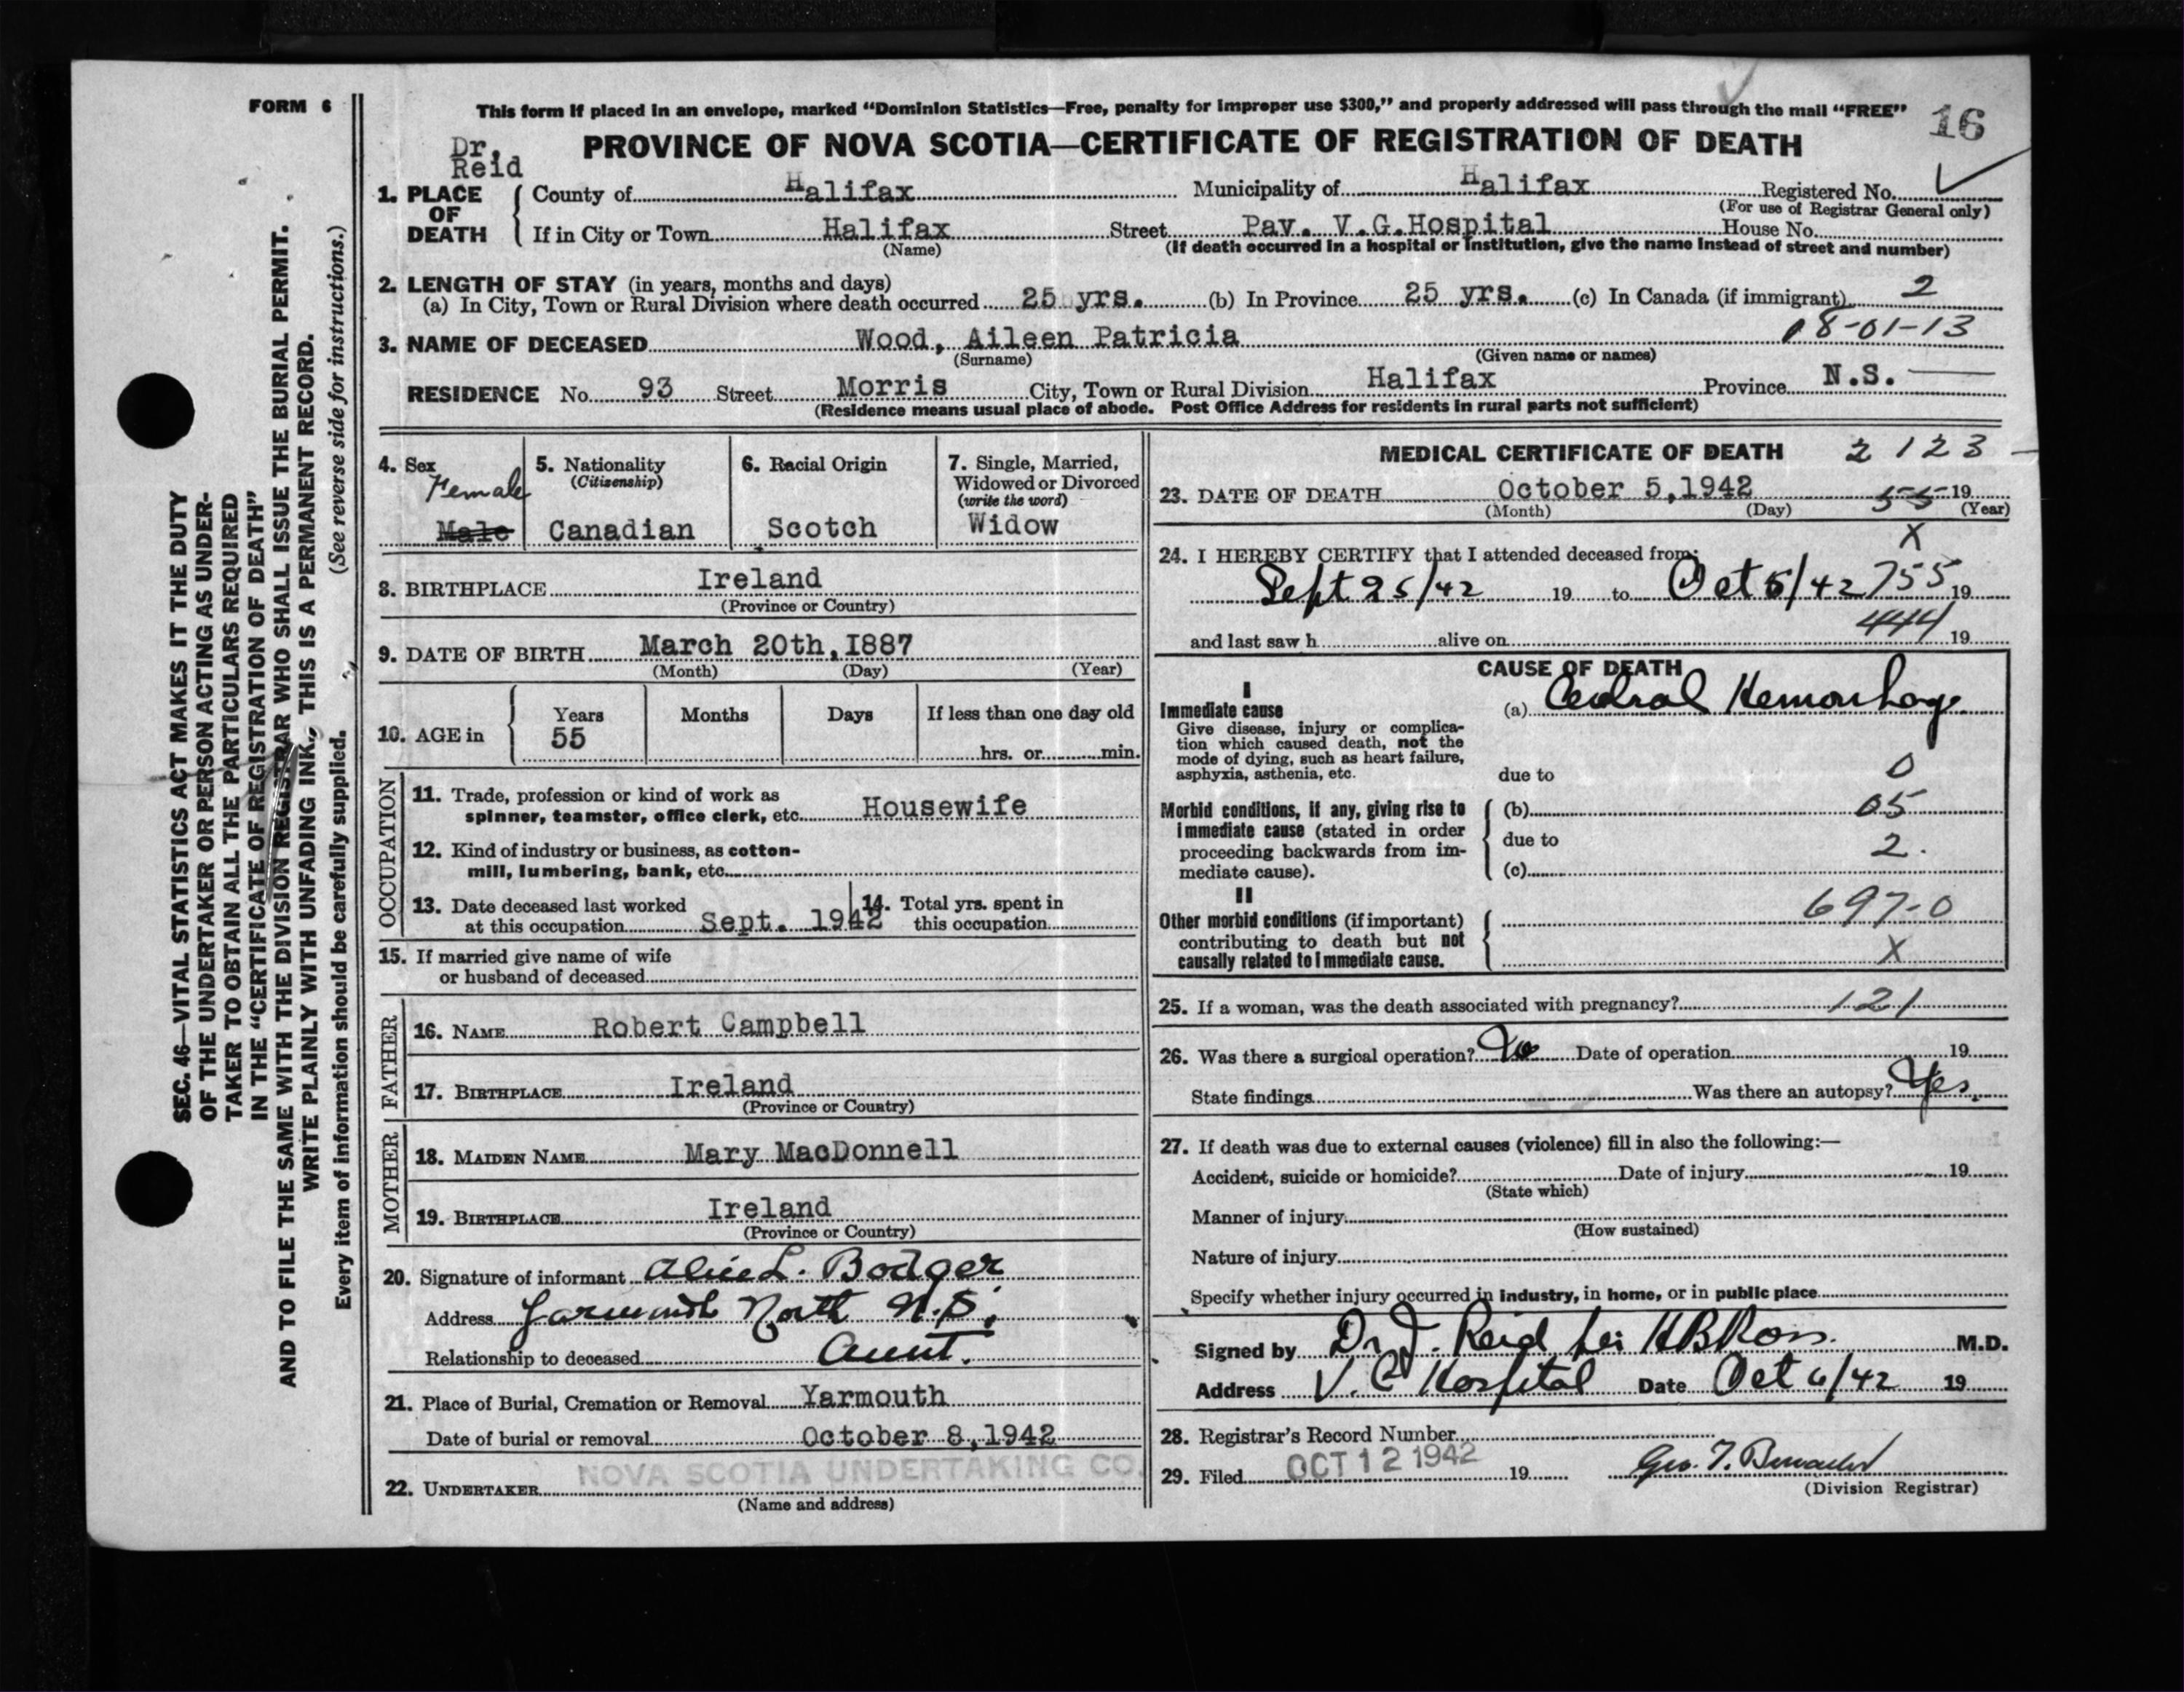 FORM 6
This form if placed in an envelope, marked “Dominion Statistics—Free, penalty for improper use $300,” and properly addressed will pass through the mail “FREE”
16
Dr.
Reid
PROVINCE OF NOVA SCOTIA—CERTIFICATE OF REGISTRATION OF DEATH
1. PLACE OF DEATH
County of Halifax Municipality of Halifax Registered No.
(For use of Registrar General only)
If in City or Town Halifax Street Pav. V.G.Hospital House No.
(Name) (If death occurred in a hospital or institution, give the name instead of street and number)
2. LENGTH OF STAY (in years, months and days)
(a) In City, Town or Rural Division where death occurred 25 yrs. (b) In Province 25 yrs. (c) In Canada (if immigrant) 2
8-01-13
3. NAME OF DECEASED Wood, Aileen Patricia
(Surname) (Given name or names)
RESIDENCE No. 93 Street Morris City, Town or Rural Division Halifax Province N.S.
(Residence means usual place of abode. Post Office Address for residents in rural parts not sufficient)
4. Sex Female Male
5. Nationality (Citizenship) Canadian
6. Racial Origin Scotch
7. Single, Married, Widowed or Divorced (write the word) Widow
8. BIRTHPLACE Ireland
(Province or Country)
9. DATE OF BIRTH March 20th,1887
(Month) (Day) (Year)
10. AGE in Years 55 Months Days If less than one day old
hrs. or min.
OCCUPATION
11. Trade, profession or kind of work as
spinner, teamster, office clerk, etc. Housewife
12. Kind of industry or business, as cotton-
mill, lumbering, bank, etc.
13. Date deceased last worked
at this occupation Sept. 1942
14. Total yrs. spent in
this occupation
15. If married give name of wife
or husband of deceased
FATHER
16. NAME Robert Campbell
17. BIRTHPLACE Ireland
(Province or Country)
MOTHER
18. MAIDEN NAME Mary MacDonnell
19. BIRTHPLACE Ireland
(Province or Country)
20. Signature of informant Alice L. Bodger
Address Yarmouth North N.S.
Relationship to deceased Aunt.
21. Place of Burial, Cremation or Removal Yarmouth
Date of burial or removal October 8,1942
22. UNDERTAKER NOVA SCOTIA UNDERTAKING CO.
(Name and address)
MEDICAL CERTIFICATE OF DEATH 2123
23. DATE OF DEATH October 5,1942 55 19
(Month) (Day) (Year)
X
24. I HEREBY CERTIFY that I attended deceased from:
Sept 25/42 19 to Oct 5/42 755 19
444
and last saw h alive on 19
CAUSE OF DEATH
I
Immediate cause
Give disease, injury or complica-
tion which caused death, not the
mode of dying, such as heart failure,
asphyxia, asthenia, etc.
(a) Hemorrhage
due to 0
Morbid conditions, if any, giving rise to
immediate cause (stated in order
proceeding backwards from im-
mediate cause).
(b) 05
due to 2.
(c)
II
Other morbid conditions (if important)
contributing to death but not
causally related to immediate cause.
697-0
X
25. If a woman, was the death associated with pregnancy? 121
26. Was there a surgical operation? No Date of operation 19
State findings Was there an autopsy? Yes.
27. If death was due to external causes (violence) fill in also the following:—
Accident, suicide or homicide? Date of injury 19
(State which)
Manner of injury
(How sustained)
Nature of injury
Specify whether injury occurred in industry, in home, or in public place
Signed by Dr J. Reid per HB Ross. M.D.
Address V. G Hospital Date Oct 6/42 19
28. Registrar’s Record Number
29. Filed OCT 12 1942 19
(Division Registrar)
SEC. 46—VITAL STATISTICS ACT MAKES IT THE DUTY
OF THE UNDERTAKER OR PERSON ACTING AS UNDER-
TAKER TO OBTAIN ALL THE PARTICULARS REQUIRED
IN THE “CERTIFICATE OF REGISTRATION OF DEATH”
AND TO FILE THE SAME WITH THE DIVISION REGISTRAR WHO SHALL ISSUE THE BURIAL PERMIT.
WRITE PLAINLY WITH UNFADING INK. THIS IS A PERMANENT RECORD.
Every item of information should be carefully supplied. (See reverse side for instructions.)